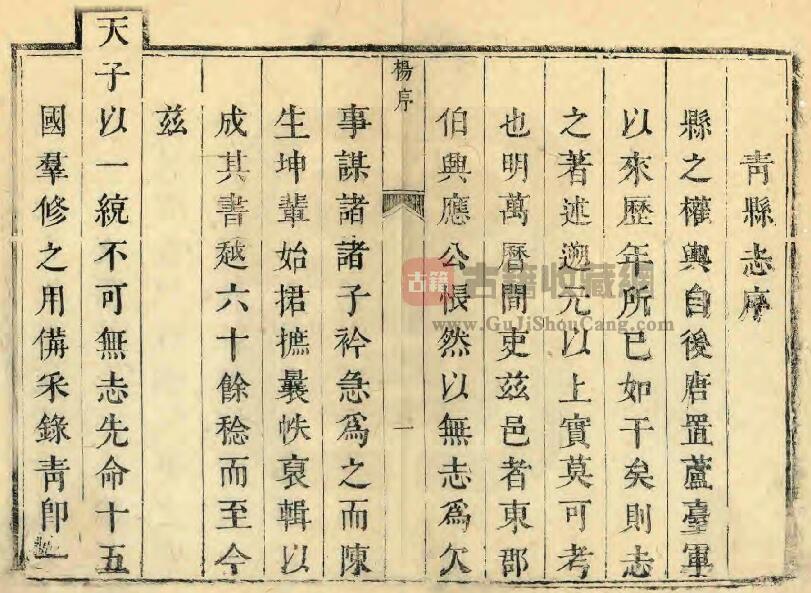 青縣志序
縣之權輿自後唐置蘆臺軍
以來歷年所已如干矣則志
之著述遡元以上實莫可考
也明萬曆間吏茲邑者東郡
伯興應公悵然以無志爲欠
楊序
一
事謀諸諸子衿急爲之而陳
生坤輩始捃摭曩帙裒輯以
成其書越六十餘稔而至今
茲
天子以一統不可無志先命十五
國羣修之用備采錄青卽一
古籍 古籍收藏網
www.GuJiShouCang.com